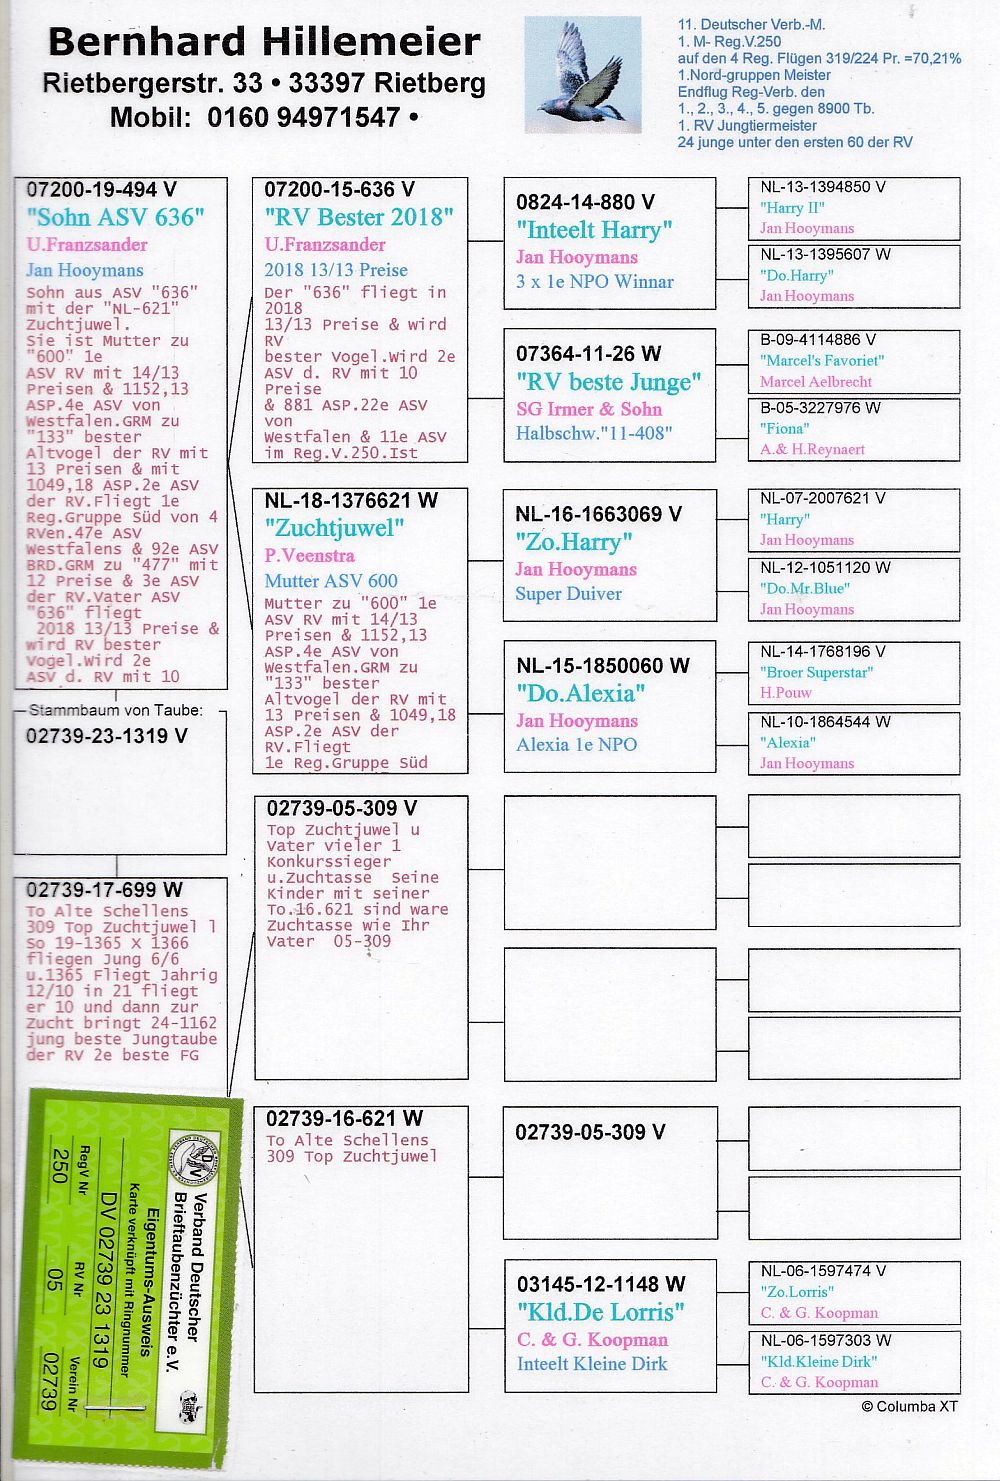 Bernhard Hillemeier
Rietbergerstr. 33 • 33397 Rietberg
Mobil: 0160 94971547 •
11. Deutscher Verb.-M.
1. M- Reg.V.250
auf den 4 Reg. Flügen 319/224 Pr. =70,21%
1.Nord-gruppen Meister
Endflug Reg-Verb. den
1., 2., 3., 4., 5. gegen 8900 Tb.
1. RV Jungtiermeister
24 junge unter den ersten 60 der RV
07200-19-494 V
"Sohn ASV 636"
U.Franzsander
Jan Hooymans
Sohn aus ASV "636"
mit der "NL-621"
Zuchtjuwel.
Sie ist Mutter zu
"600" 1e
ASV RV mit 14/13
Preisen & 1152,13
ASP.4e ASV von
Westfalen.GRM zu
"133" bester
Altvogel der RV mit
13 Preisen & mit
1049,18 ASP.2e ASV
der RV.Fliegt 1e
Reg.Gruppe Süd von 4
RVen.47e ASV
Westfalens & 92e ASV
BRD.GRM zu "477" mit
12 Preise & 3e ASV
der RV.Vater ASV
"636" fliegt
2018 13/13 Preise &
wird RV bester
Vogel.Wird 2e
ASV d. RV mit 10
Stammbaum von Taube:
02739-23-1319 V
02739-17-699 W
To Alte Schellens
309 Top Zuchtjuwel l
So 19-1365 X 1366
fliegen Jung 6/6
u.1365 Fliegt Jahrig
12/10 in 21 fliegt
er 10 und dann zur
Zucht bringt 24-1162
jung beste Jungtaube
der RV 2e beste FG
07200-15-636 V
"RV Bester 2018"
U.Franzsander
2018 13/13 Preise
Der "636" fliegt in
2018
13/13 Preise & wird
RV
bester Vogel.Wird 2e
ASV d. RV mit 10
Preise
& 881 ASP.22e ASV
von
Westfalen & 11e ASV
im Reg.V.250.Ist
NL-18-1376621 W
"Zuchtjuwel"
P.Veenstra
Mutter ASV 600
Mutter zu "600" 1e
ASV RV mit 14/13
Preisen & 1152,13
ASP.4e ASV von
Westfalen.GRM zu
"133" bester
Altvogel der RV mit
13 Preisen & 1049,18
ASP.2e ASV der
RV.Fliegt
1e Reg.Gruppe Süd
02739-05-309 V
Top Zuchtjuwel u
Vater vieler 1
Konkurssieger
u.Zuchtasse Seine
Kinder mit seiner
To.16.621 sind ware
Zuchtasse wie Ihr
Vater 05-309
02739-16-621 W
To Alte Schellens
309 Top Zuchtjuwel
0824-14-880 V
"Inteelt Harry"
Jan Hooymans
3 x 1e NPO Winnar
07364-11-26 W
"RV beste Junge"
SG Irmer & Sohn
Halbschw."11-408"
NL-16-1663069 V
"Zo.Harry"
Jan Hooymans
Super Duiver
NL-15-1850060 W
"Do.Alexia"
Jan Hooymans
Alexia 1e NPO
02739-05-309 V
03145-12-1148 W
"Kld.De Lorris"
C. & G. Koopman
Inteelt Kleine Dirk
NL-13-1394850 V
"Harry II"
Jan Hooymans
NL-13-1395607 W
"Do.Harry"
Jan Hooymans
B-09-4114886 V
"Marcel's Favoriet"
Marcel Aelbrecht
B-05-3227976 W
"Fiona"
A.& H.Reynaert
NL-07-2007621 V
"Harry"
Jan Hooymans
NL-12-1051120 W
"Do.Mr.Blue"
Jan Hooymans
NL-14-1768196 V
"Broer Superstar"
H.Pouw
NL-10-1864544 W
"Alexia"
Jan Hooymans
NL-06-1597474 V
"Zo.Lorris"
C. & G. Koopman
NL-06-1597303 W
"Kld.Kleine Dirk"
C. & G. Koopman
© Columba XT
Verband Deutscher
Brieftaubenzüchter e.V.
Eigentums-Ausweis
Karte verknüpft mit Ringnummer
DV 02739 23 1319
RegV Nr
250
RV Nr
05
Verein Nr
02739